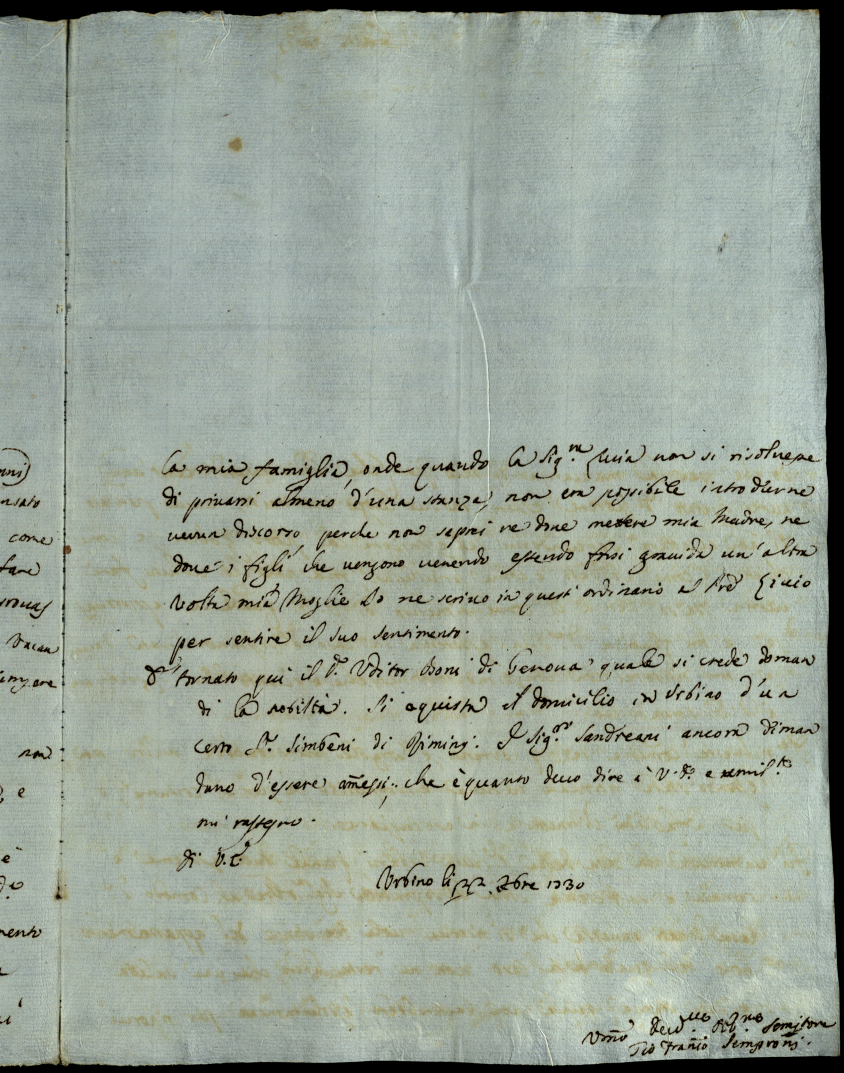 nni)
la mia famiglia, onde quando la Sig.ra Livia non si risolvesse
nsato
di privarsi almeno d'una stanza, non era possibile introdurne
come
verun discorso, perche non saprei ne dove mettere mia Madre, ne
fare
dove i figli che vengono venendo essendo forsi gravida un'altra
volta mia Moglie. Io ne scrivo in quest'ordinario al Pred.
per sentire il suo sentimento.
vacan
tornato qui il S. Uditor Boni di Genova, quale si crede doman
di la nobiltà. Si aquista il domicilio in Urbino d'un
certo S. Simbeni di Rimini. I Sig.ri Sandreani ancora diman
non
dano d'essere amessi; che è quanto devo dire à V.S. e umil.te
e
mi rassegno.
di V.S.
Urbino li 22. Xbre 1730
mento
Umo Servitore
Gio Franco Semproni.